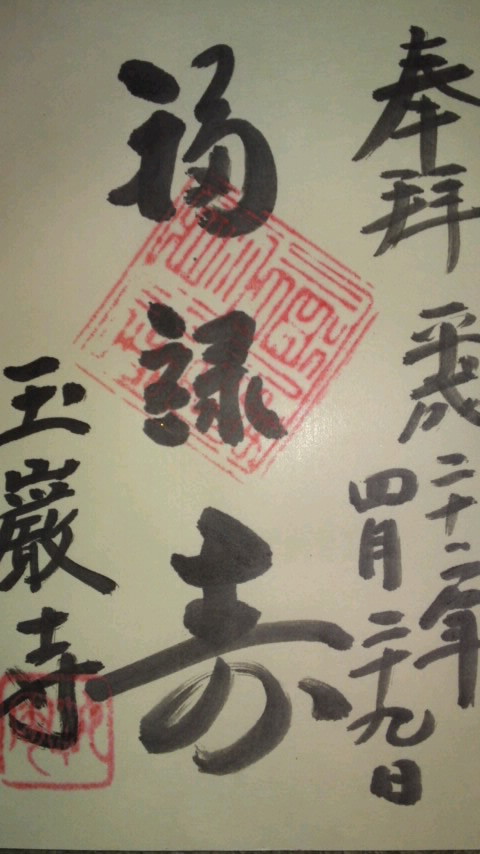 奉拝
平成二十二年
四月二十九日
福禄寿
玉巖寺